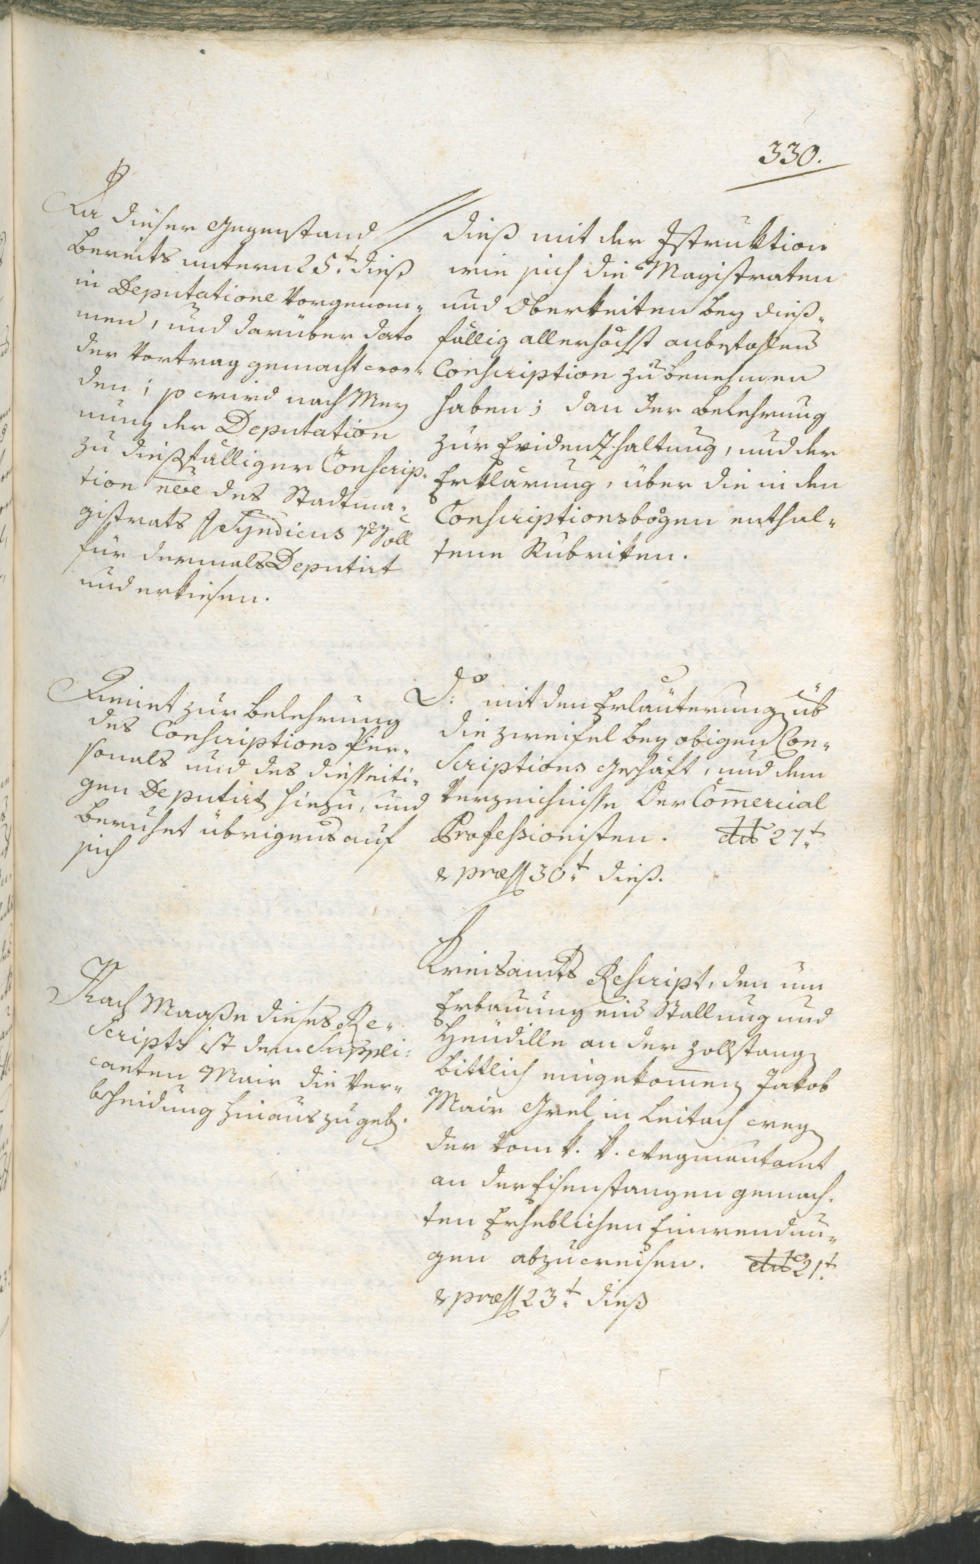 330.
Da dieser Gegenstand
bereits untern 25.t dieß
in Deputatione vorgenom¬
men, und darüber dato
der Vortrag gemacht wor¬
den; so wird nach Mey
nung der Deputation
zu dießfälliger Conscrip¬
tion des Stadtma¬
gistrats Syndicus
für dermals Deputirt
und erkiesen.
dieß mit der Jstruktion
wie sich die Magistraten
und Oberkeiten bey dieß¬
fällig allerhöchst anbefohlens
Conscription zu benehmen
haben; dan der Belehrung
zur Evidenzhaltung, und der
Erklärung, über die in den
Conscriptionsbögen enthal¬
tene Rubriken.
Dienet zur Belehrung
des Conscriptions Per¬
sonals und des diesseiti¬
gen Deputirt hiezu, und
beruhet übrigens auf
sich
D:o mit den Erläuterung üb
die Zweifel bey obigen Con¬
scriptions Geschäft, und dem
Verzeichnisse der Com̅ercial
Professionisten. ddto 27.t
& præs 30.t dieß.
Nach Maaße dieses Re¬
scripts ist dem Suppli¬
canten Mair die Ver¬
bscheidung hinauszugeb.
Kreisamts Rescript, den um
Erbauung eins Stallung und
Heudille an der Zollstang
bittlich eingekom̅en Jakob
Mair in Leitach weg
der vom k. k. Wegmautamt
an der Eisenstangen gemach¬
ten Erheblichen Einwendun¬
gen abzuweisen. ddto 21.t
& præs 23.t dieß